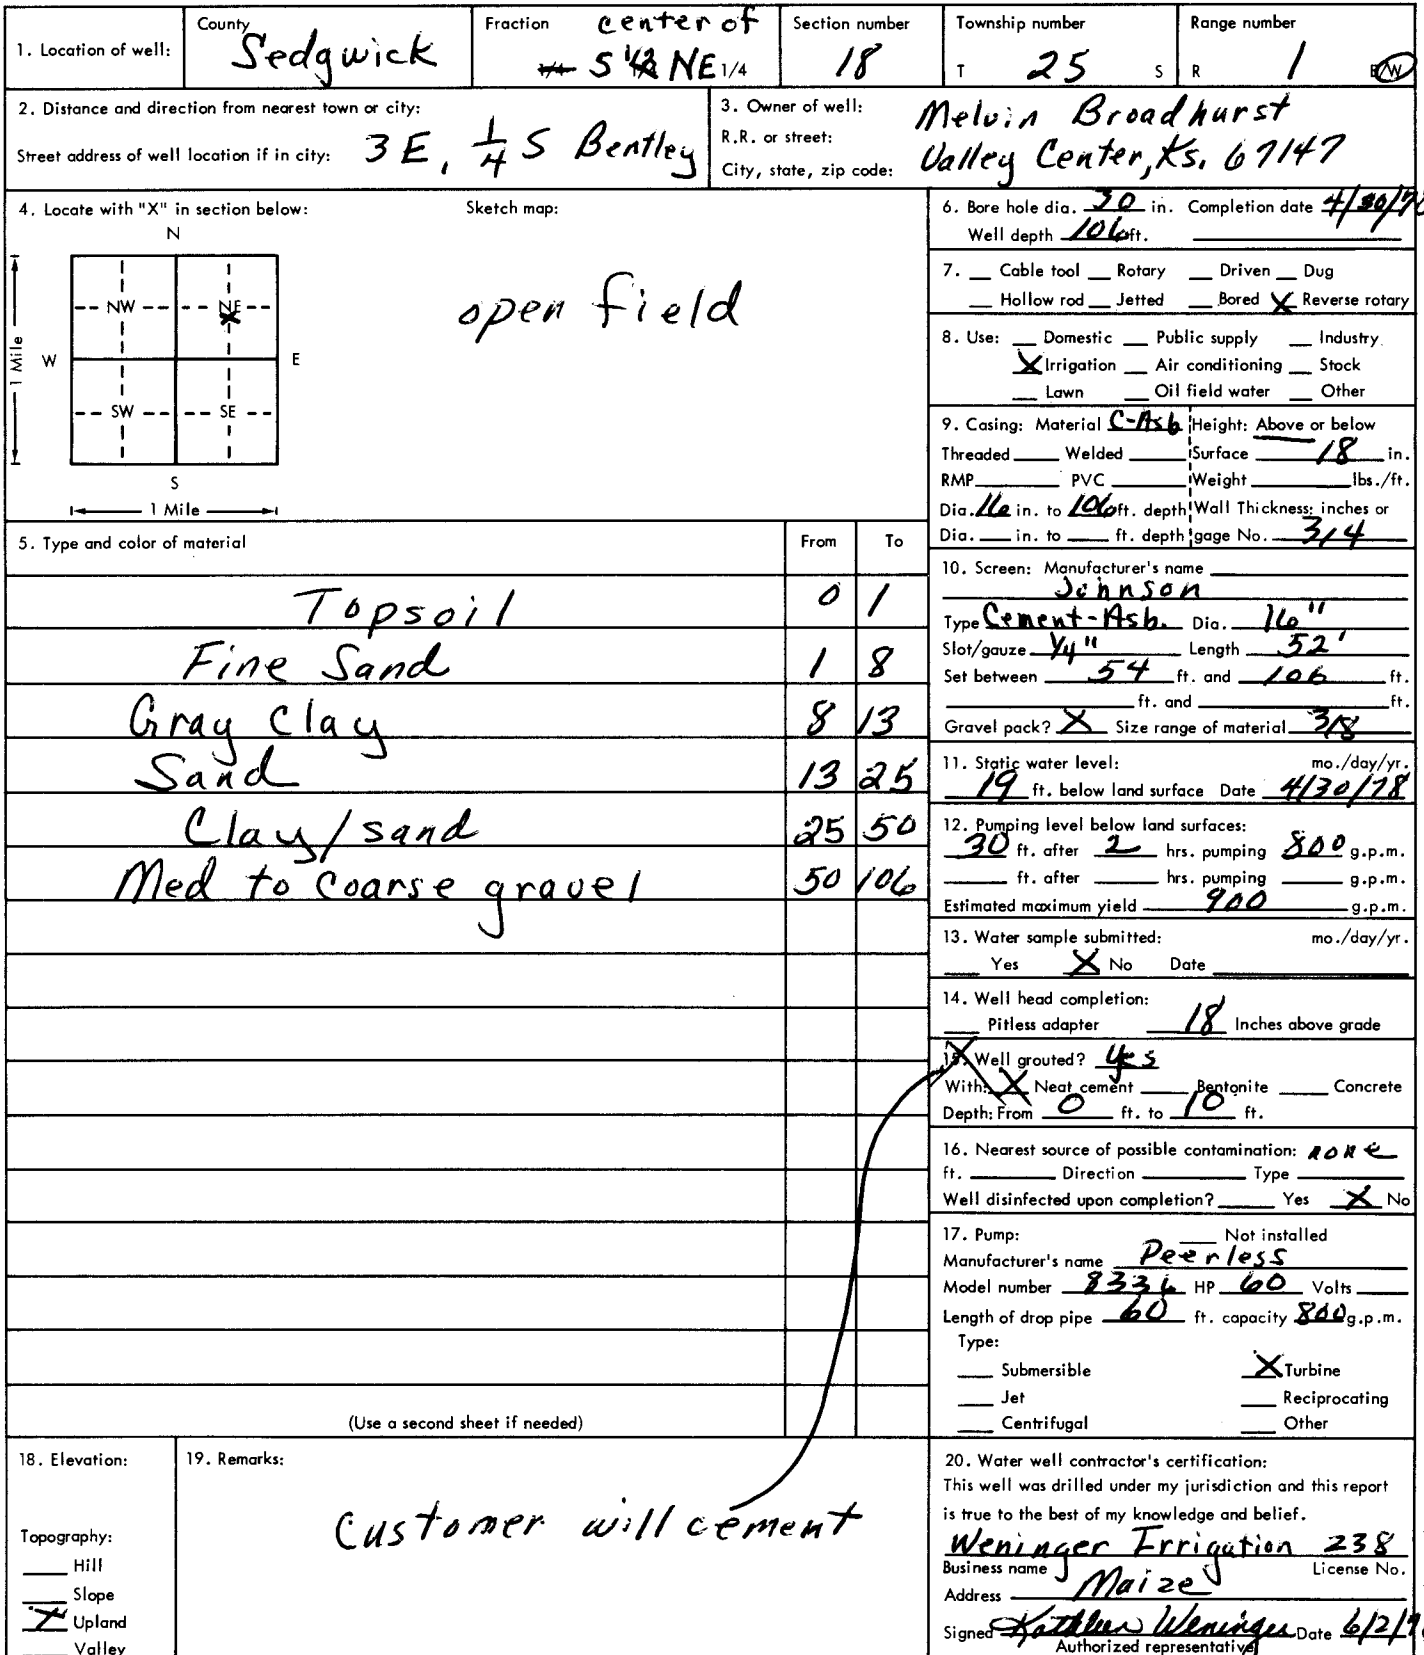 1. Location of well:
County
Sedgwick
Fraction center of
1/4 S 1/2 NE 1/4
Section number
18
Township number
T 25 S
Range number
R 1 E/W
2. Distance and direction from nearest town or city:
Street address of well location if in city: 3 E, 1/4 S Bentley
3. Owner of well: Melvin Broadhurst
R.R. or street:
City, state, zip code: Valley Center, Ks. 67147
4. Locate with "X" in section below:
Sketch map:
N
NW NE
X
W E
SW SE
S
1 Mile
1 Mile
open field
5. Type and color of material From To
Topsoil 0 1
Fine Sand 1 8
Gray Clay 8 13
Sand 13 25
Clay/sand 25 50
Med to coarse gravel 50 106
(Use a second sheet if needed)
6. Bore hole dia. 30 in. Completion date 4/30/78
Well depth 106 ft.
7. __ Cable tool __ Rotary __ Driven __ Dug
__ Hollow rod __ Jetted __ Bored X Reverse rotary
8. Use: __ Domestic __ Public supply __ Industry
X Irrigation __ Air conditioning __ Stock
__ Lawn __ Oil field water __ Other
9. Casing: Material C-Asb Height: Above or below
Threaded ____ Welded ____ Surface 18 in.
RMP ____ PVC ____ Weight ____ lbs./ft.
Dia. 16 in. to 106 ft. depth Wall Thickness: inches or
Dia. __ in. to __ ft. depth gage No. 3/4
10. Screen: Manufacturer's name
Johnson
Type Cement-Asb. Dia. 16"
Slot/gauze 1/4" Length 52'
Set between 54 ft. and 106 ft.
____ ft. and ____ ft.
Gravel pack? X Size range of material 3/8
11. Static water level: mo./day/yr.
19 ft. below land surface Date 4/30/78
12. Pumping level below land surfaces:
30 ft. after 2 hrs. pumping 800 g.p.m.
____ ft. after ____ hrs. pumping ____ g.p.m.
Estimated maximum yield 900 g.p.m.
13. Water sample submitted: mo./day/yr.
__ Yes X No Date ____
14. Well head completion:
__ Pitless adapter 18 Inches above grade
15. Well grouted? yes
With: X Neat cement ____ Bentonite ____ Concrete
Depth: From 0 ft. to 10 ft.
16. Nearest source of possible contamination: none
ft. ____ Direction ____ Type ____
Well disinfected upon completion? ____ Yes X No
17. Pump: ____ Not installed
Manufacturer's name Peerless
Model number 8336 HP 60 Volts ____
Length of drop pipe 60 ft. capacity 800 g.p.m.
Type:
__ Submersible X Turbine
__ Jet __ Reciprocating
__ Centrifugal __ Other
18. Elevation:
Topography:
__ Hill
__ Slope
X Upland
__ Valley
19. Remarks:
Customer will cement
20. Water well contractor's certification:
This well was drilled under my jurisdiction and this report
is true to the best of my knowledge and belief.
Weninger Irrigation 238
Business name License No.
Address Maize
Signed Kathleen Weninger Date 6/2/7
Authorized representative